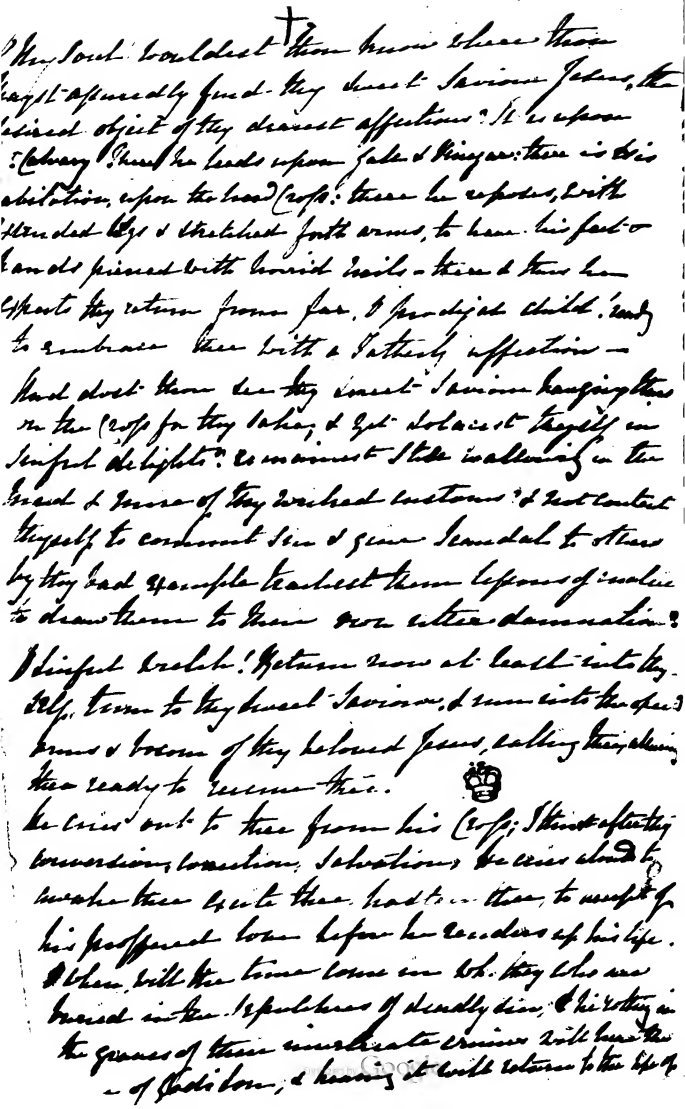 My Soul wouldest thou know where thou
mayst assuredly find thy sweet Saviour Jesus, the
desired object of thy dearest affections? It is upon
Calvary There he feeds upon Gale & Vinegar: there is his
abitation, upon the hard Cross: there he reposes, with
extended legs & stretched forth arms, to have his feet &
hands pierced with horrid nails – there & thus he
expects thy return from far, O prodigal child! ready
to embrace thee with a Fatherly affection –
And dost thou see thy sweet Saviour hanging thus
on the Cross for thy sake, & yet solacest thyself in
sinful delights? remainest still wallowing in the
mud & mire of thy wicked customs? & not content
thyself to commit sin & give Scandal to others
by thy bad example teachest them lessons of malice
to draw them to their own utter damnation?
O sinful wretch! Return now at least into thy-
self, turn to thy sweet Saviour, & run into the open
arms & bosom of thy beloved Jesus, calling thee, alluring
thee ready to receive thee.
He cries out to thee from his Cross; I thirst after thy
conversion, correction, Salvation, he cries aloud to
awake thee excite thee hasten thee, to accept of
his proffered love before he renders up his life.
O when will the time come in wh. they who are
buried in the Sepulchres of deadly sin, & lie rotting in
the graves of their inveterate crimes will hear the
of God's Son, & hearing it will return to the life of
Google